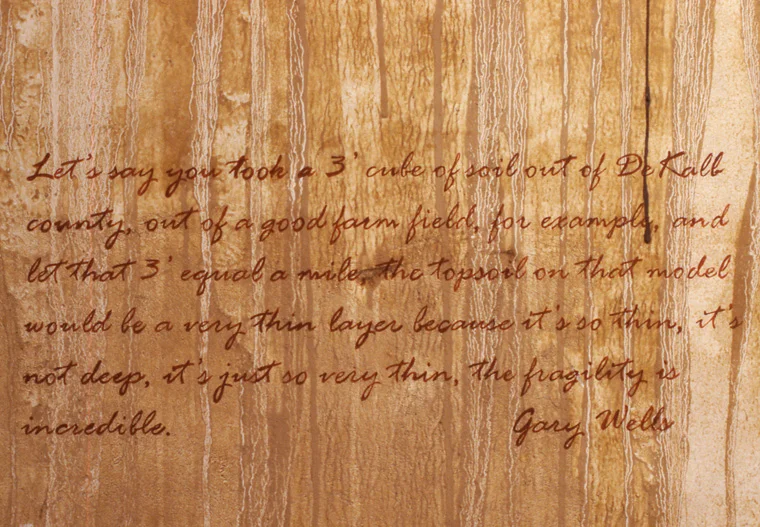 Let's say you took a 3' cube of soil out of DeKalb
county, out of a good farm field, for example, and
let that 3' equal a mile, the topsoil on that model
would be a very thin layer because it's so thin, it's
not deep, it's just so very thin, the fragility is
incredible. Gary Wells